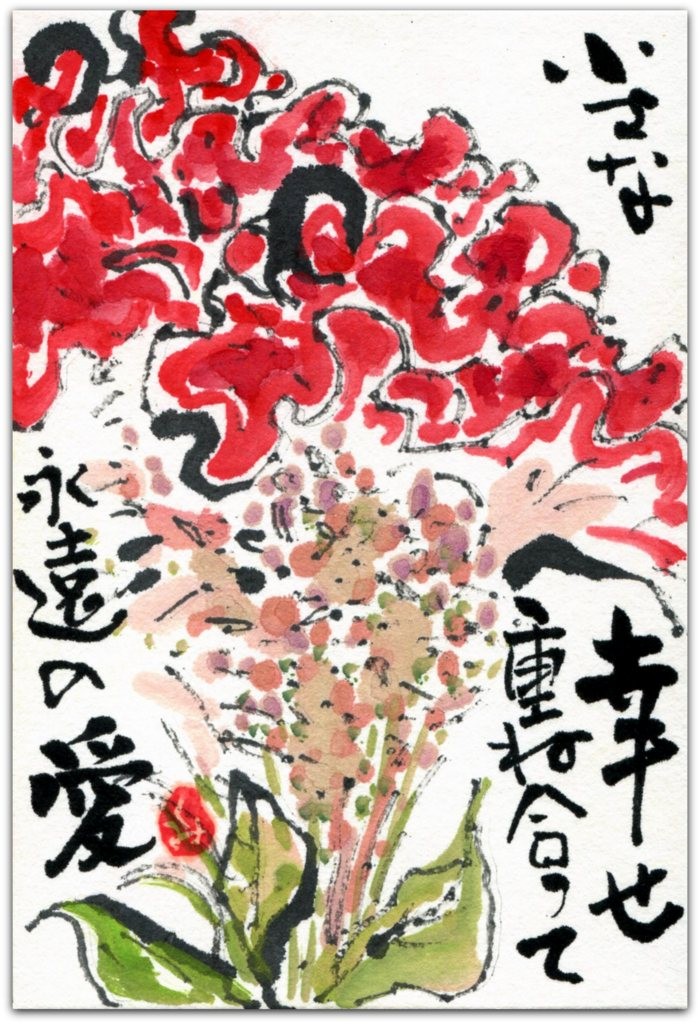 小さな
幸せ
重ね合って
永遠の愛